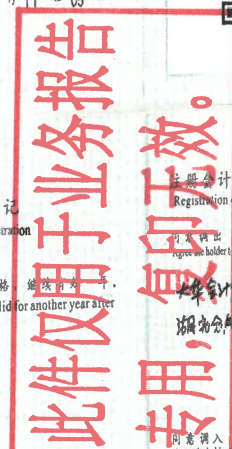 此件仅用于业务报告
专用,复印无效。
记
istration
格,继续有效一年。
lid for another year after
注册会计
Registration
同意调出
Agree the holder t
大华会计
湖南分
同意调入